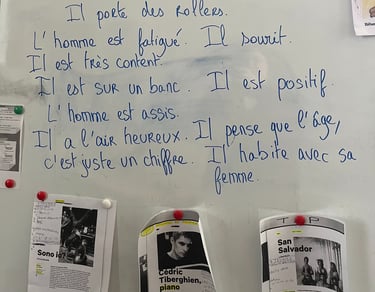 Il porte des rollers.
L'homme est fatigué. Il sourit.
Il est très content.
Il est sur un banc. Il est positif.
L'homme est assis.
Il a l'air heureux. Il pense que l'âge,
c'est juste un chiffre. Il habite avec sa
femme.
Sono io?
Cédric
Tiberghien,
piano
T P
San
Salvador